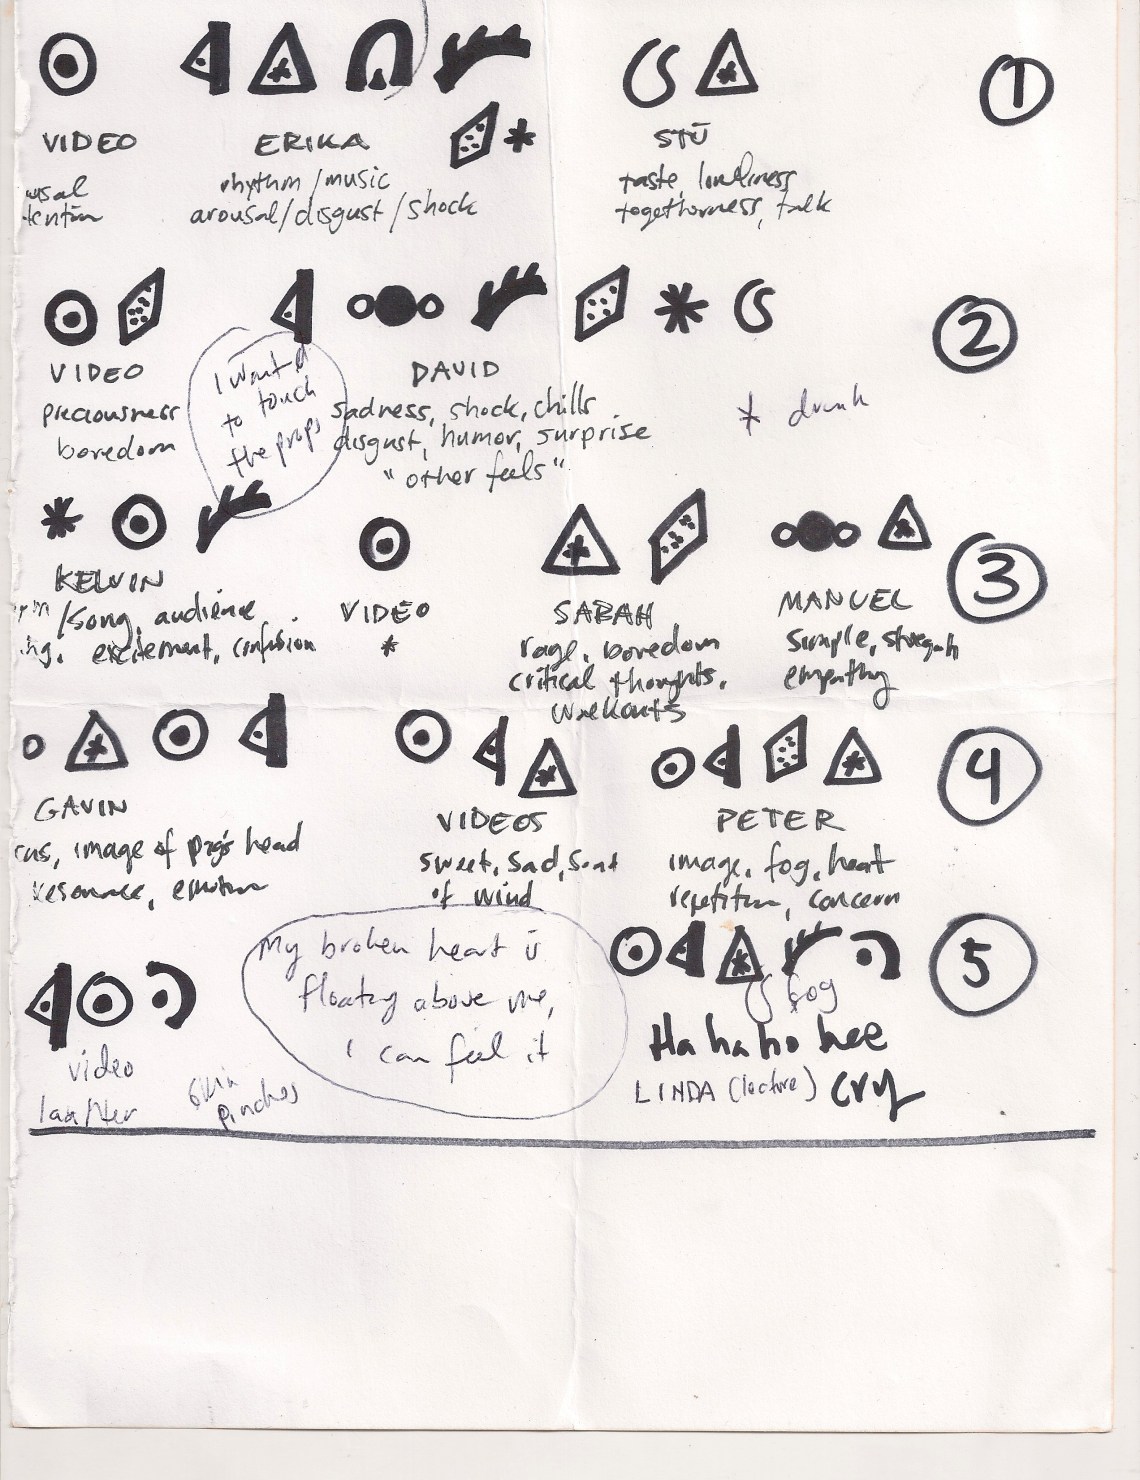 1
VIDEO
ERIKA
STŪ
usal
rhythm/music
taste, loneliness
tention
arousal/disgust/shock
togetherness, talk
2
VIDEO
DAVID
preciousness
boredom
I want
to touch
the props
sadness, shock, chills
disgust, humor, surprise
"other feels"
* drunk
3
KELVIN
VIDEO
SARAH
MANUEL
/song, audience
*
excitement, confusion
rage, boredom
critical thoughts,
walkouts
simple, strength
empathy
4
GAVIN
VIDEOS
PETER
image of pig's head
resonance, emotion
sweet, sad,
of wind
image, fog, heat
repetition, concern
5
My broken heart is
floating above me,
I can feel it
fog
Ha ha ho hee
video
skin
pinches
LINDA (lecture) cry